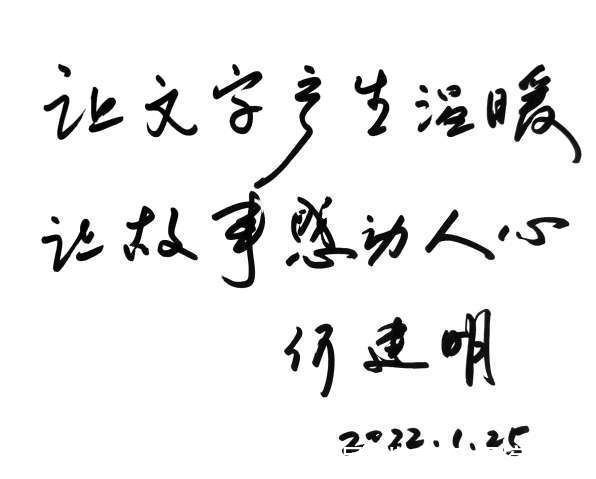 让文字产生温暖
让故事感动人心
何建明
2022.1.25